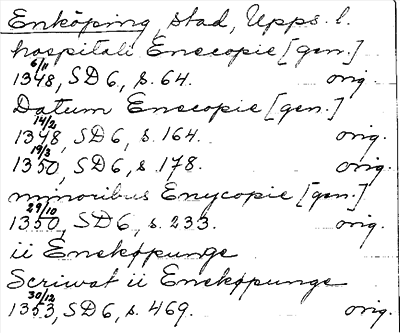 Enköping, stad, Upps. l.
hospitali Enecopie [gen.]
6/11
1348, SD 6, s. 64. orig.
Datum Enecopie [gen.]
14/2
1348, SD 6, s. 164. orig.
19/3
1350, SD 6, s. 178. orig.
minoribus Enycopie [gen.]
29/10
1350, SD 6, s. 233. orig.
ii Eneskøpunge
Scriwat ii Eneskøpunge
30/12
1353, SD 6, s. 469. orig.